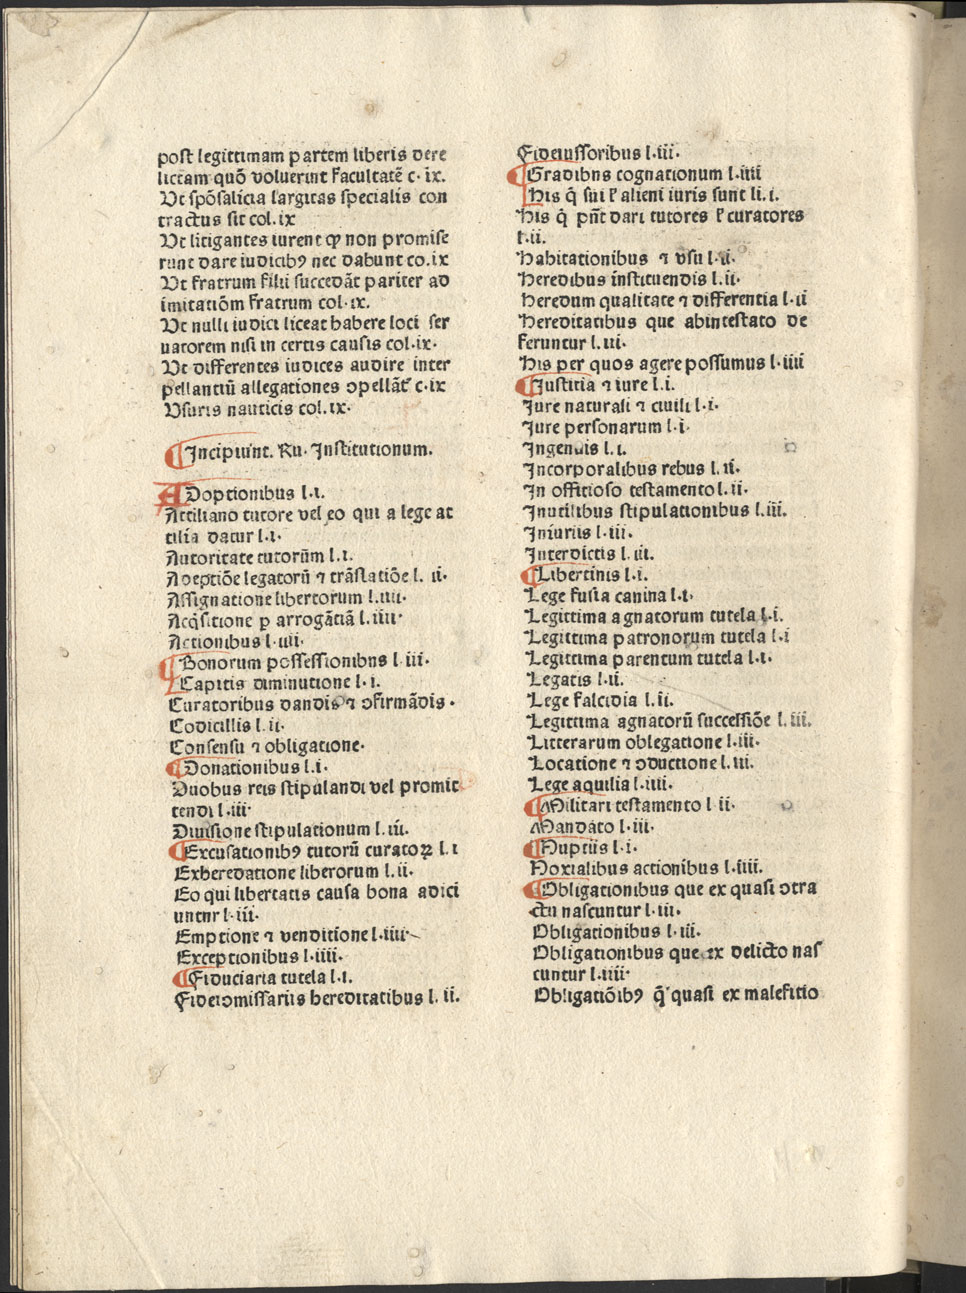 post legittimam partem liberis dere
lictam quō voluerint facultatē c. ix.
Vt spōsalicia largitas specialis con
tractus sit col. ix
Vt litigantes iurent ꝙ non promise
runt dare iudicibꝰ nec dabunt co. ix
Vt fratrum filii succedāt pariter ad
imitatiōm fratrum col. ix.
Vt nulli iudici liceat habere loci ser
uatorem nisi in certis causis col. ix.
Vt differentes iudices audire inter
pellantiū allegationes ɔpellāt᷒ c. ix
Vsuris nauticis col. ix.
¶Incipiūnt. Ru. Institutionum.
ADoptionibus l. i.
Attiliano tutore vel eo qui a lege at
tilia datur l. i.
Autoritate tutorūm l. i.
Adeptiōe legatorū ⁊ trāslatiōe l. ii.
Assignatione libertorum l. iiii.
Acq̇sitione p arrogātiā l. iiii.
Actionibus l. iiii.
¶Bonorum possessionibns l. iii.
¶Capitis diminutione l. i.
Curatoribus dandis ⁊ ɔfirmādis.
Codicillis l. ii.
Consensu ⁊ obligatione.
¶Donationibus l. i.
Duobus reis stipulandi vel promit
tendi l. iii.
Diuisione stipulationum l. iii.
¶Excusationibꝰ tutorū curatoꝝ l. i
Exheredatione liberorum l. ii.
Eo qui libertatis causa bona adici
untnr l. iii.
Emptione ⁊ venditione l. iiii.
Exceptionibus l. iiii.
¶Fiduciaria tutela l. i.
Fideiɔmissariis hereditatibus l. ii.
Fideiussoribus l. iii.
¶Gradibns cognationum l. iiii
¶His q̄ sui ⁊ alieni iuris sunt li. i.
His q̇ pn̄t dari tutores ⁊ curatores
l. ii.
Habitationibus ⁊ vsu l. ii.
Heredibus instituendis l. ii.
Heredum qualitate ⁊ differentia l. ii
Hereditatibus que abintestato de
feruntur l. iii.
His per quos agere possumus l. iiii
¶Justitia ⁊ iure l. i.
Jure naturali ⁊ ciuili l. i.
Jure personarum l. i.
Ingenuis l. i.
Incorporalibus rebus l. ii.
In offitioso testamento l. ii.
Inutilibus stipulationibus l. iii.
Iniuriis l. iii.
Interdictis l. iii.
¶Libertinis l. i.
Lege fusia canina l. i.
Legittima agnatorum tutela l. i.
Legittima patronorum tutela l. i
Legittima parentum tutela l. i.
Legatis l. ii.
Lege falcidia l. ii.
Legittima agnatorū successiōe l. iii.
Litterarum oblegatione l. iii.
Locatione ⁊ ɔductione l. iii.
Lege aquilia l. iiii.
¶Militari testamento l. ii.
Mandato l. iii.
¶Nuptiis l. i.
Noxialibus actionibus l. iiii.
¶Obligationibus que ex quasi ɔtra
ctu nascuntur l. iii.
Obligationibus l. iii.
Obligationibus que ex delicto nas
cuntur l. iiii.
Obligatiōibꝰ q̄ quasi ex malefitio